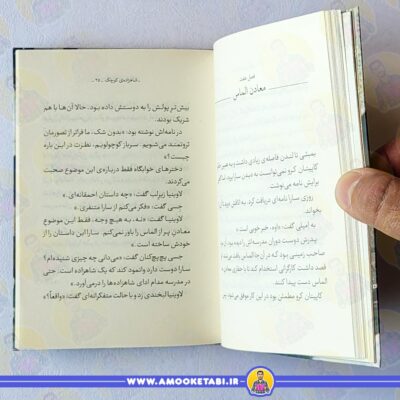 فصل هفت
معادن الماس
بمبئی تا لندن فاصله‌ی زیادی داشت و به همین
کاپیتان کرو نمی‌توانست به دیدن سارا بیاید
برایش نامه می‌نوشت.
روزی سارا نامه‌ای دریافت کرد.
بخواند.
به اِمیلی گفت: «اوه، خبر خوبی است.»
پدرش دوست دوران مدرسه‌اش را
صاحب زمینی بود که در آن جا الماس
قصد داشت کارگرانی استخدام کند تا با حفاری معادن
الماس دست پیدا کنند.
کاپیتان کرو مطمئن بود در این کار موفق
شاهزاده‌ی کوچک ۲۵
بیش‌ترِ پولش را به دوستش داده بود. حالا آن‌ها با هم
شریک بودند.
در نامه‌اش نوشته بود: «بدون شک، ما فراتر از تصورمان
ثروتمند می‌شویم. سرباز کوچولویم، نظرت در این باره
چیست؟»
دخترهای خوابگاه فقط درباره‌ی این موضوع صحبت
می‌کردند.
لاوینیا زیرلب گفت: «چه داستان احمقانه‌ای.»
جسی گفت: «فکر می‌کنم از سارا متنفری.»
لاوینیا گفت: «نه. به هیچ وجه. فقط این موضوع
معادنِ پر از الماس را باور نمی‌کنم. سارا این داستان را از
خودش ساخته است.»
جسی پچ‌پچ‌کنان گفت: «می‌دانی چه چیزی شنیده‌ام؟
سارا دوست دارد وانمود کند که یک شاهزاده است. حتی
در مدرسه مدام ادای شاهزاده‌ها را درمی‌آورد.»
لاوینیا لبخندی زد و با حالت متفکرانه‌ای گفت: «واقعاً؟»
WWW.AMOOKETABI.IR